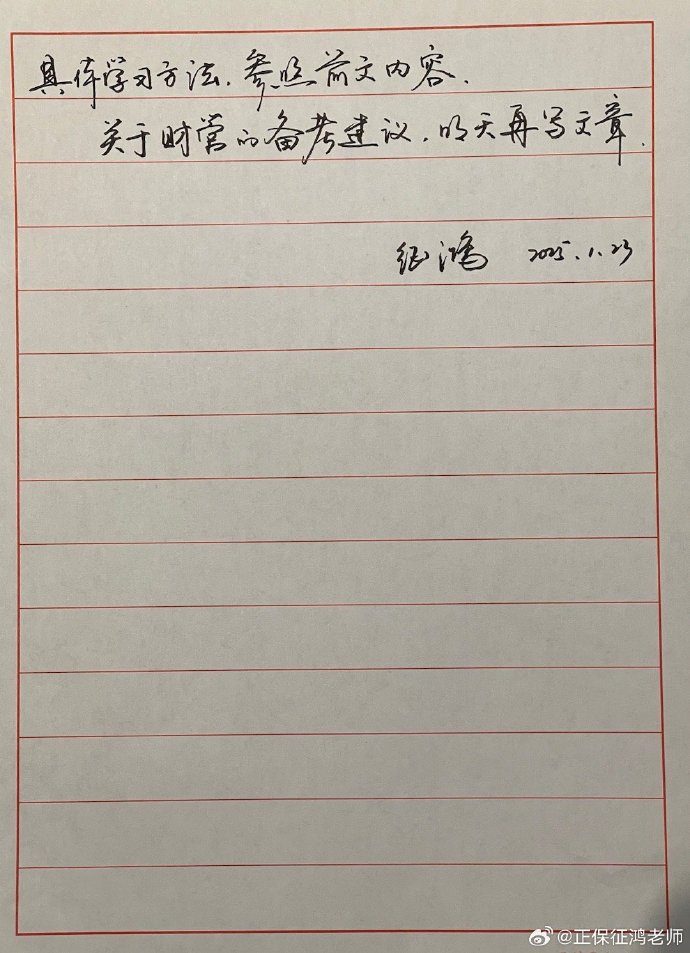 具体学习方法，参照前文内容.
关于财管的备考建议，明天再写文章.
征鸿 2025.1.23
@正保征鸿老师